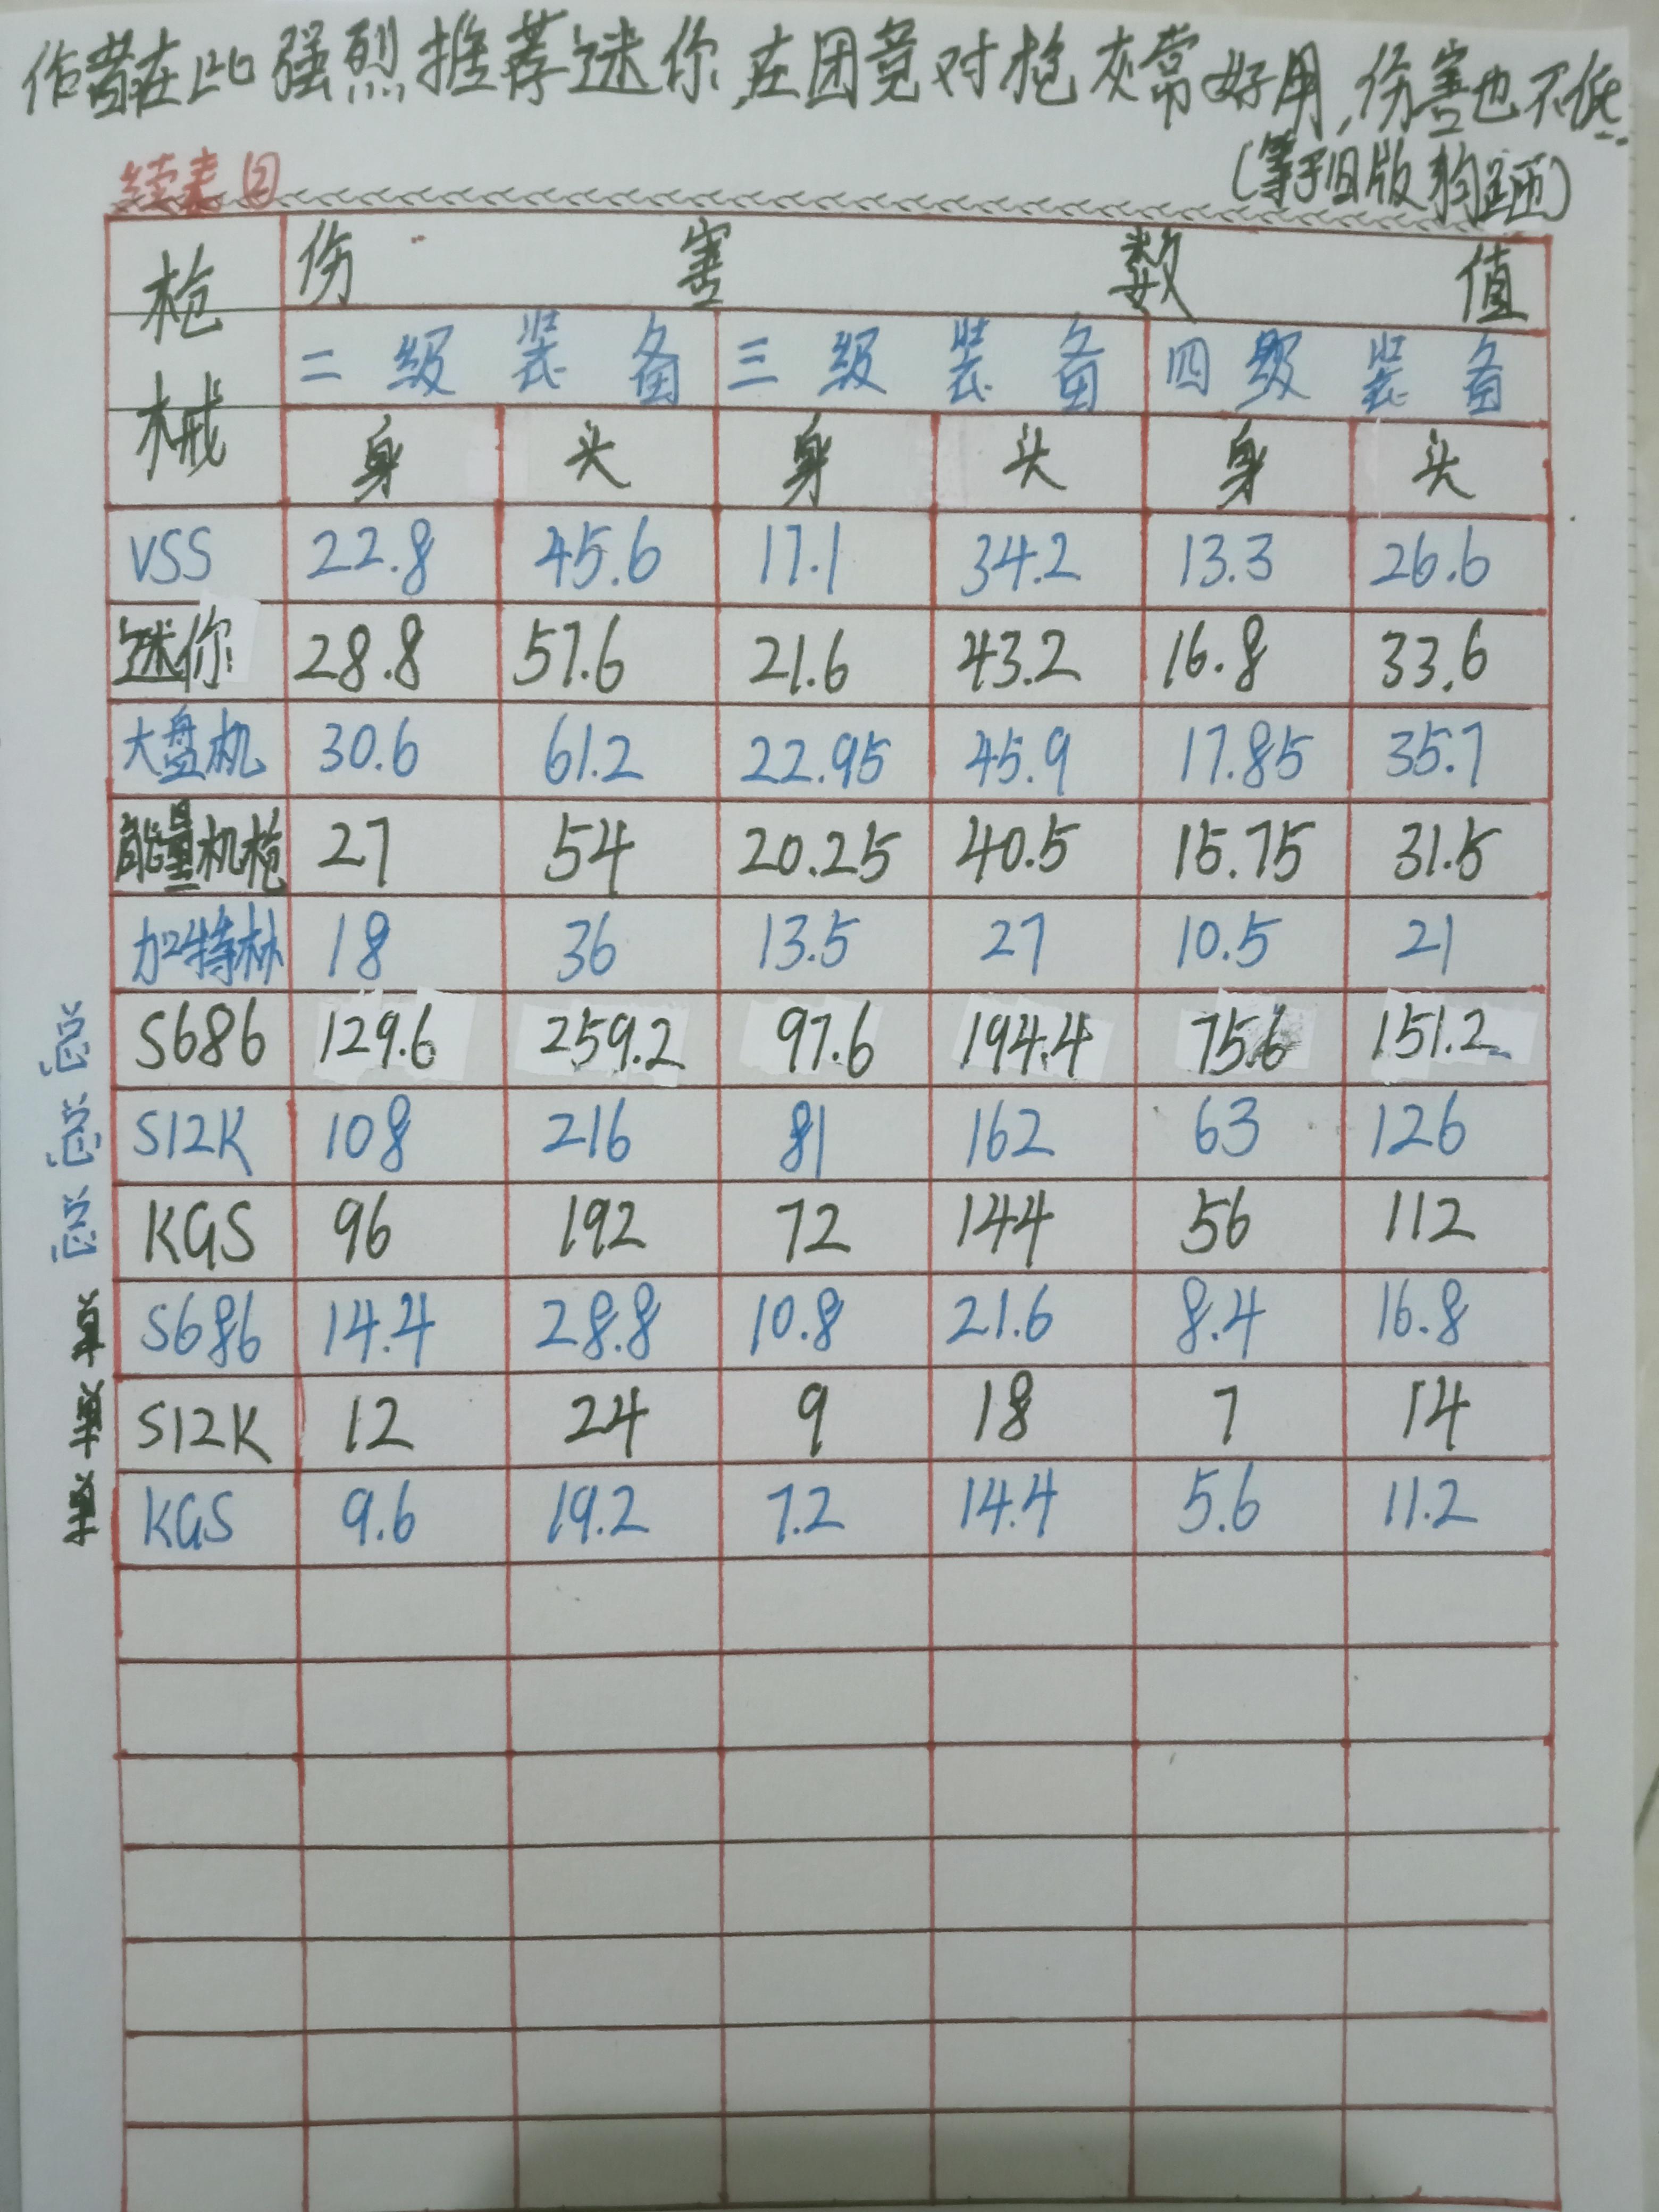 作者在此强烈推荐迷你,在团竞对枪灰常好用,伤害也不低
(等于旧版狗砸)
续表
枪械 伤害数值
二级装备 三级装备 四级装备
身 头 身 头 身 头
VSS 22.8 45.6 17.1 34.2 13.3 26.6
迷你 28.8 57.6 21.6 43.2 16.8 33.6
大盘机 30.6 61.2 22.95 45.9 17.85 35.7
能量机枪 27 54 20.25 40.5 15.75 31.5
加特林 18 36 13.5 27 10.5 21
总 S686 129.6 259.2 97.6 194.4 75.6 151.2
总 S12K 108 216 81 162 63 126
总 KGS 96 192 72 144 56 112
单 S686 14.4 28.8 10.8 21.6 8.4 16.8
单 S12K 12 24 9 18 7 14
单 KGS 9.6 19.2 7.2 14.4 5.6 11.2